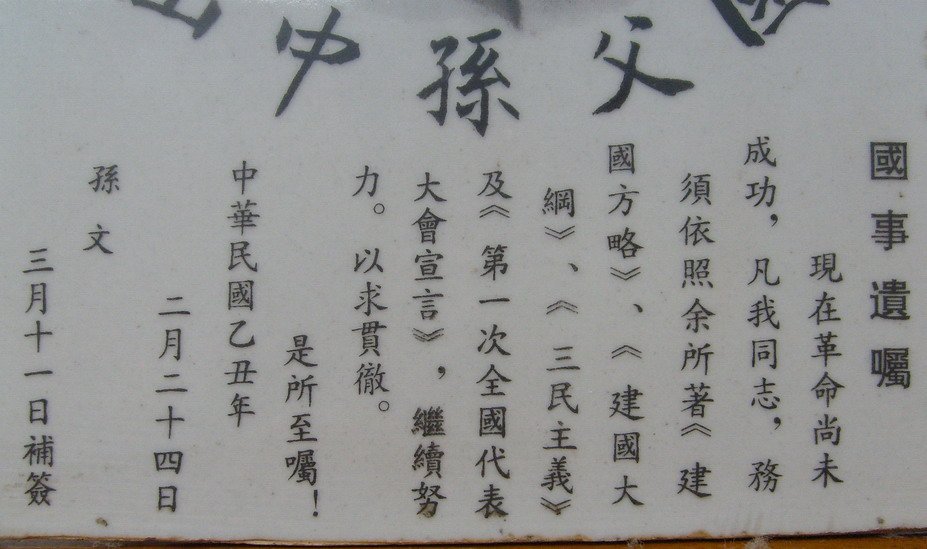 父孫中
國事遺囑
現在革命尚未
成功，凡我同志，務
須依照余所著《建
國方略》、《建國大
綱》、《三民主義》
及《第一次全國代表
大會宣言》，繼續努
力。以求貫徹。
是所至囑！
中華民國乙丑年
二月二十四日
孫文
三月十一日補簽